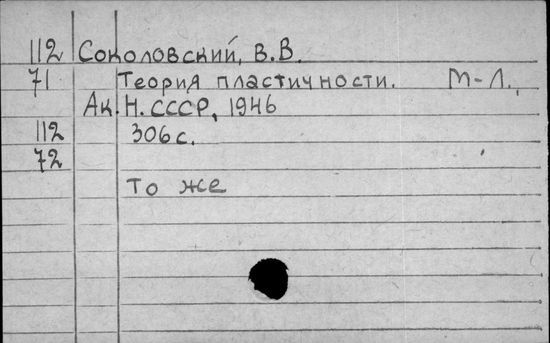 112 Соколовский, В.В.
71 Теория пластичности. М-Л.,
Ак. Н. СССР, 1946
112 306 с.
72
То же